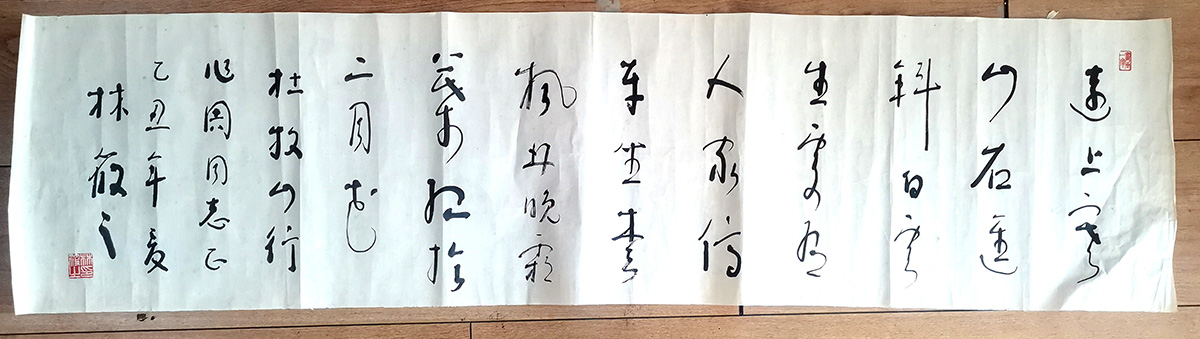 遠上寒
山石徑
斜白雲
生處有
人家停
車坐愛
楓林晚霜
葉紅於
二月花
杜牧山行
同志正
乙丑年夏
林筱之